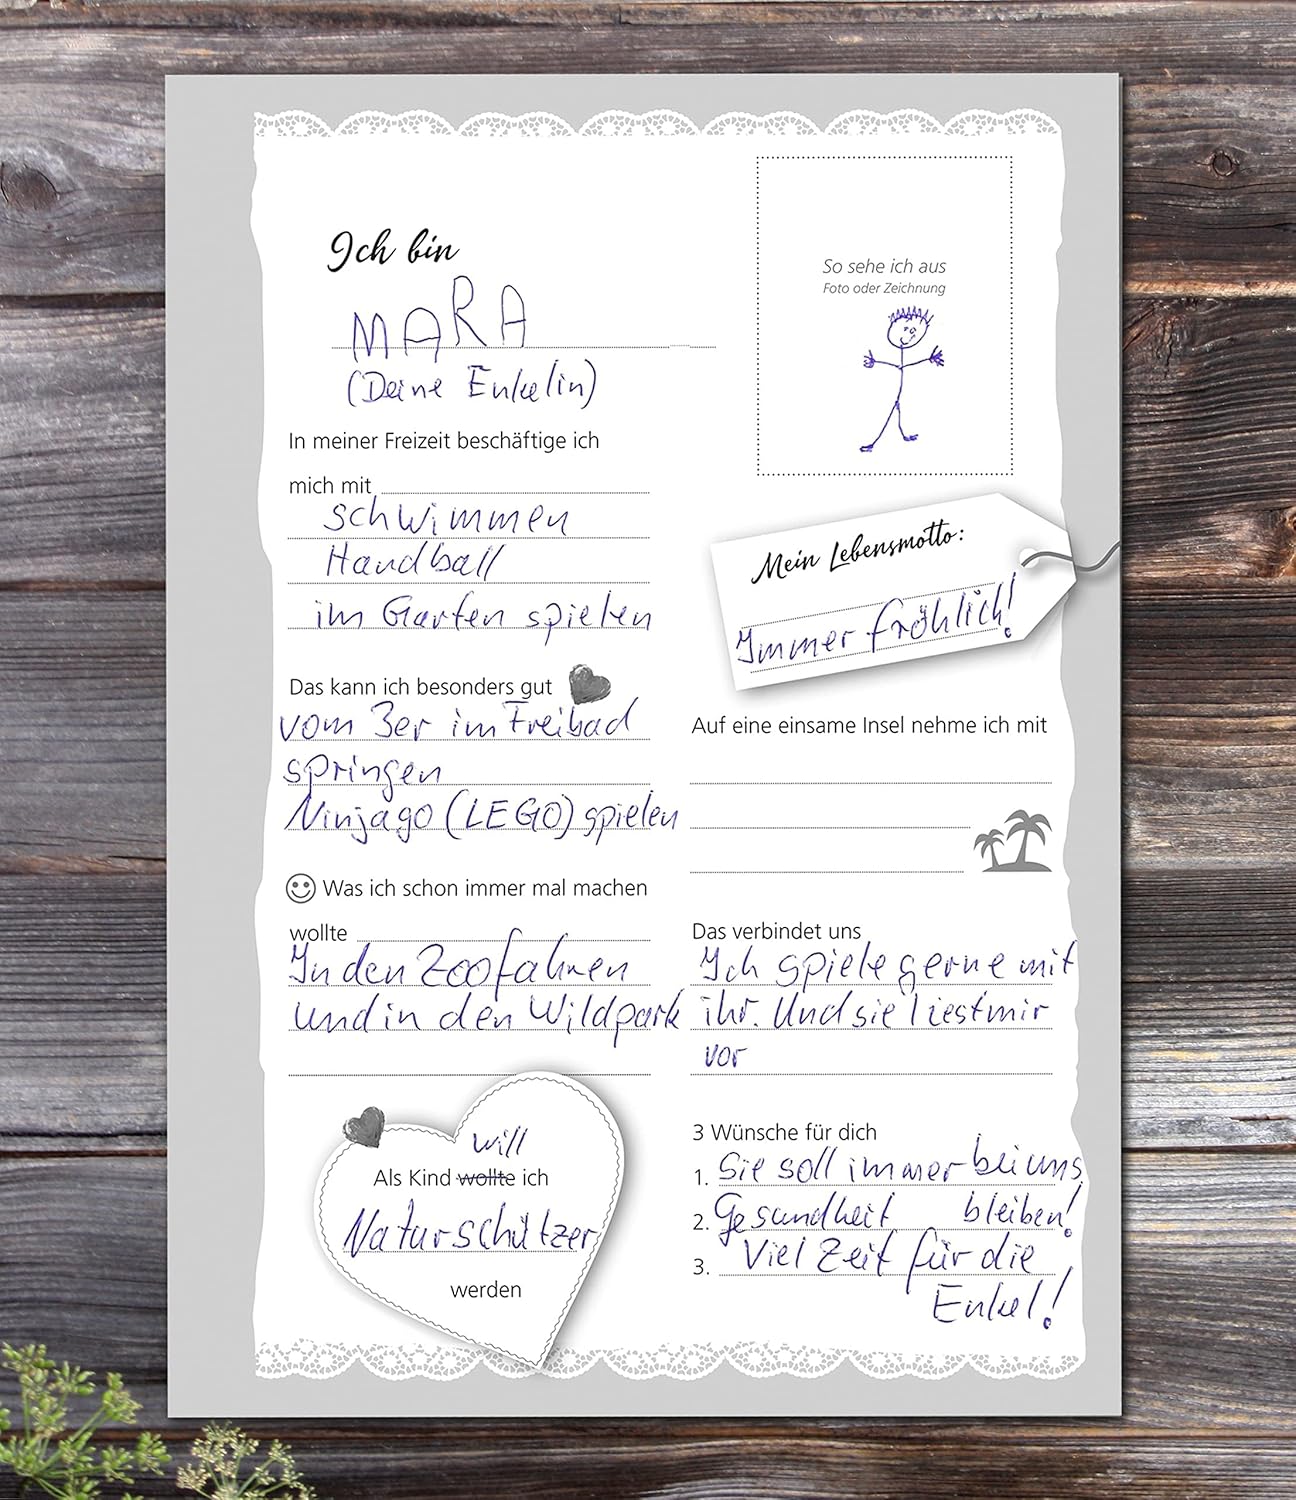 Ich bin
MARA
(Deine Enkelin)
So sehe ich aus
Foto oder Zeichnung
In meiner Freizeit beschäftige ich
mich mit
schwimmen
Handball
im Garten spielen
Mein Lebensmotto:
Immer fröhlich!
Das kann ich besonders gut
vom 3er im Freibad
springen
Ninjago (LEGO) spielen
Auf eine einsame Insel nehme ich mit
Was ich schon immer mal machen
wollte
In den Zoo fahren
und in den Wildpark
Das verbindet uns
Ich spiele gerne mit
ihr. Und sie liest mir
vor
will
Als Kind wollte ich
Naturschützer
werden
3 Wünsche für dich
1. Sie soll immer bei uns
2. Gesundheit bleiben!
3. Viel Zeit für die
Enkel!